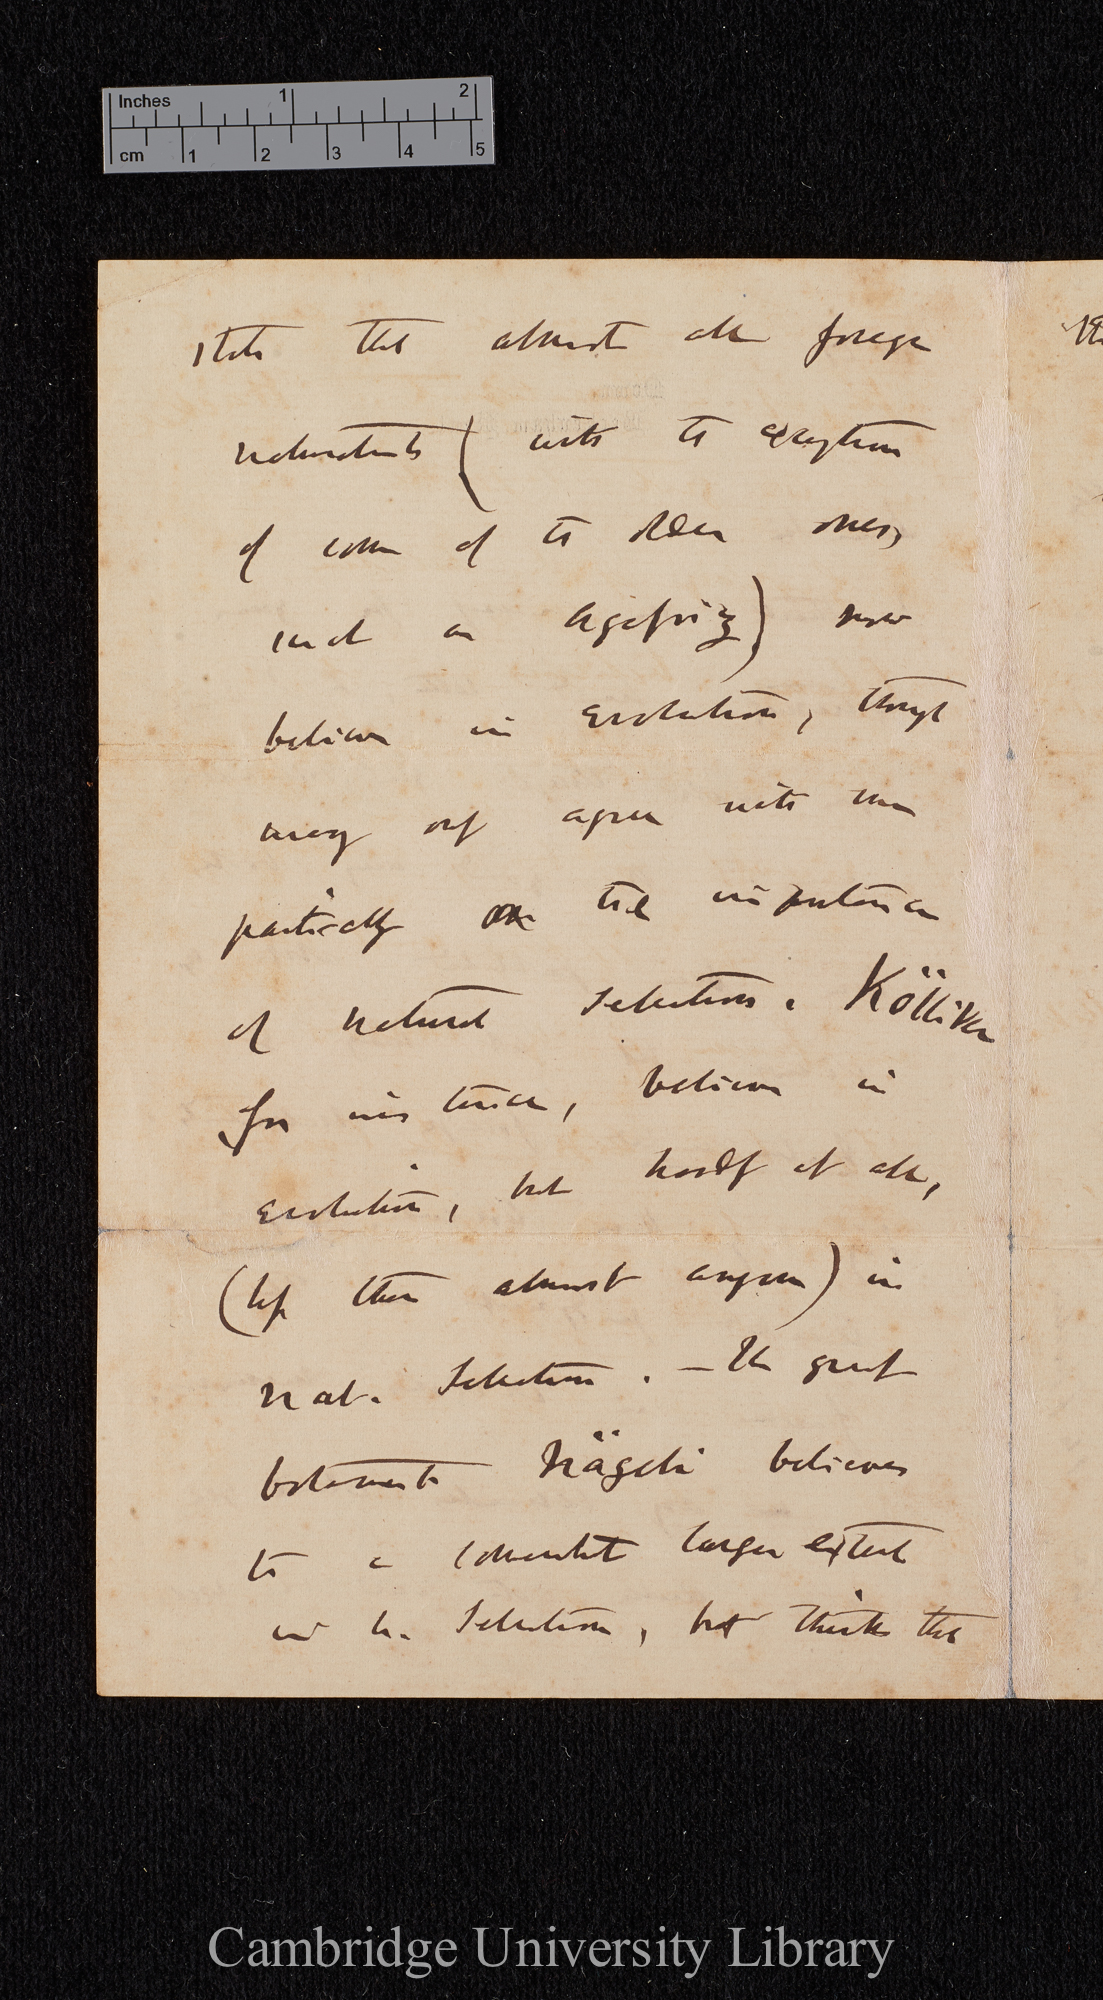 Inches 1 2
cm 1 2 3 4 5
state that almost all foreign
naturalists (with the exception
of some of the older ones,
such as Agassiz) now
believe in evolution, though
many only agree with me
partially on the importance
of natural selection. Kölliker
for instance, believes in
evolution, but hardly at all,
(less than almost anyone) in
Nat. Selection. — The great
botanist Nägeli believes
to a somewhat larger extent
in n. Selection, but thinks that
Cambridge University Library